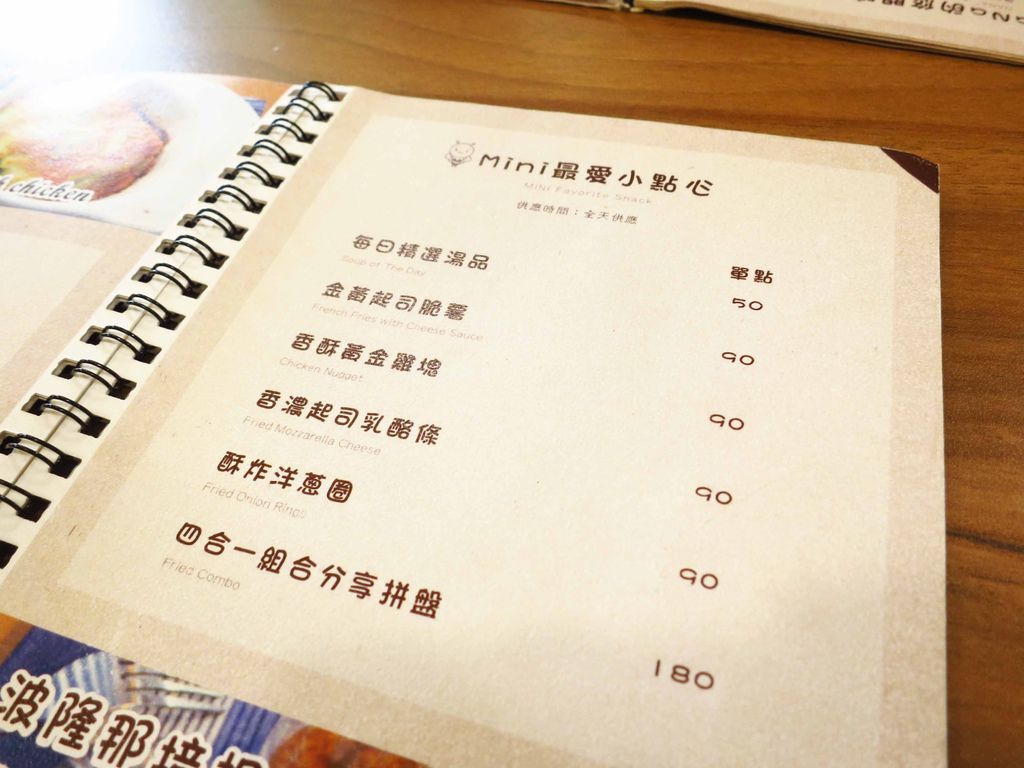 Mini最愛小點心
MINI Favorite Snack
供應時間：全天供應
單點
每日精選湯品 50
Soup of The Day
金黃起司脆薯 90
French Fries with Cheese Sauce
香酥黃金雞塊 90
Chicken Nugget
香濃起司乳酪條 90
Fried Mozzarella Cheese
酥炸洋蔥圈 90
Fried Onion Rings
四合一組合分享拼盤 180
Fried Combo
chicken
波隆那